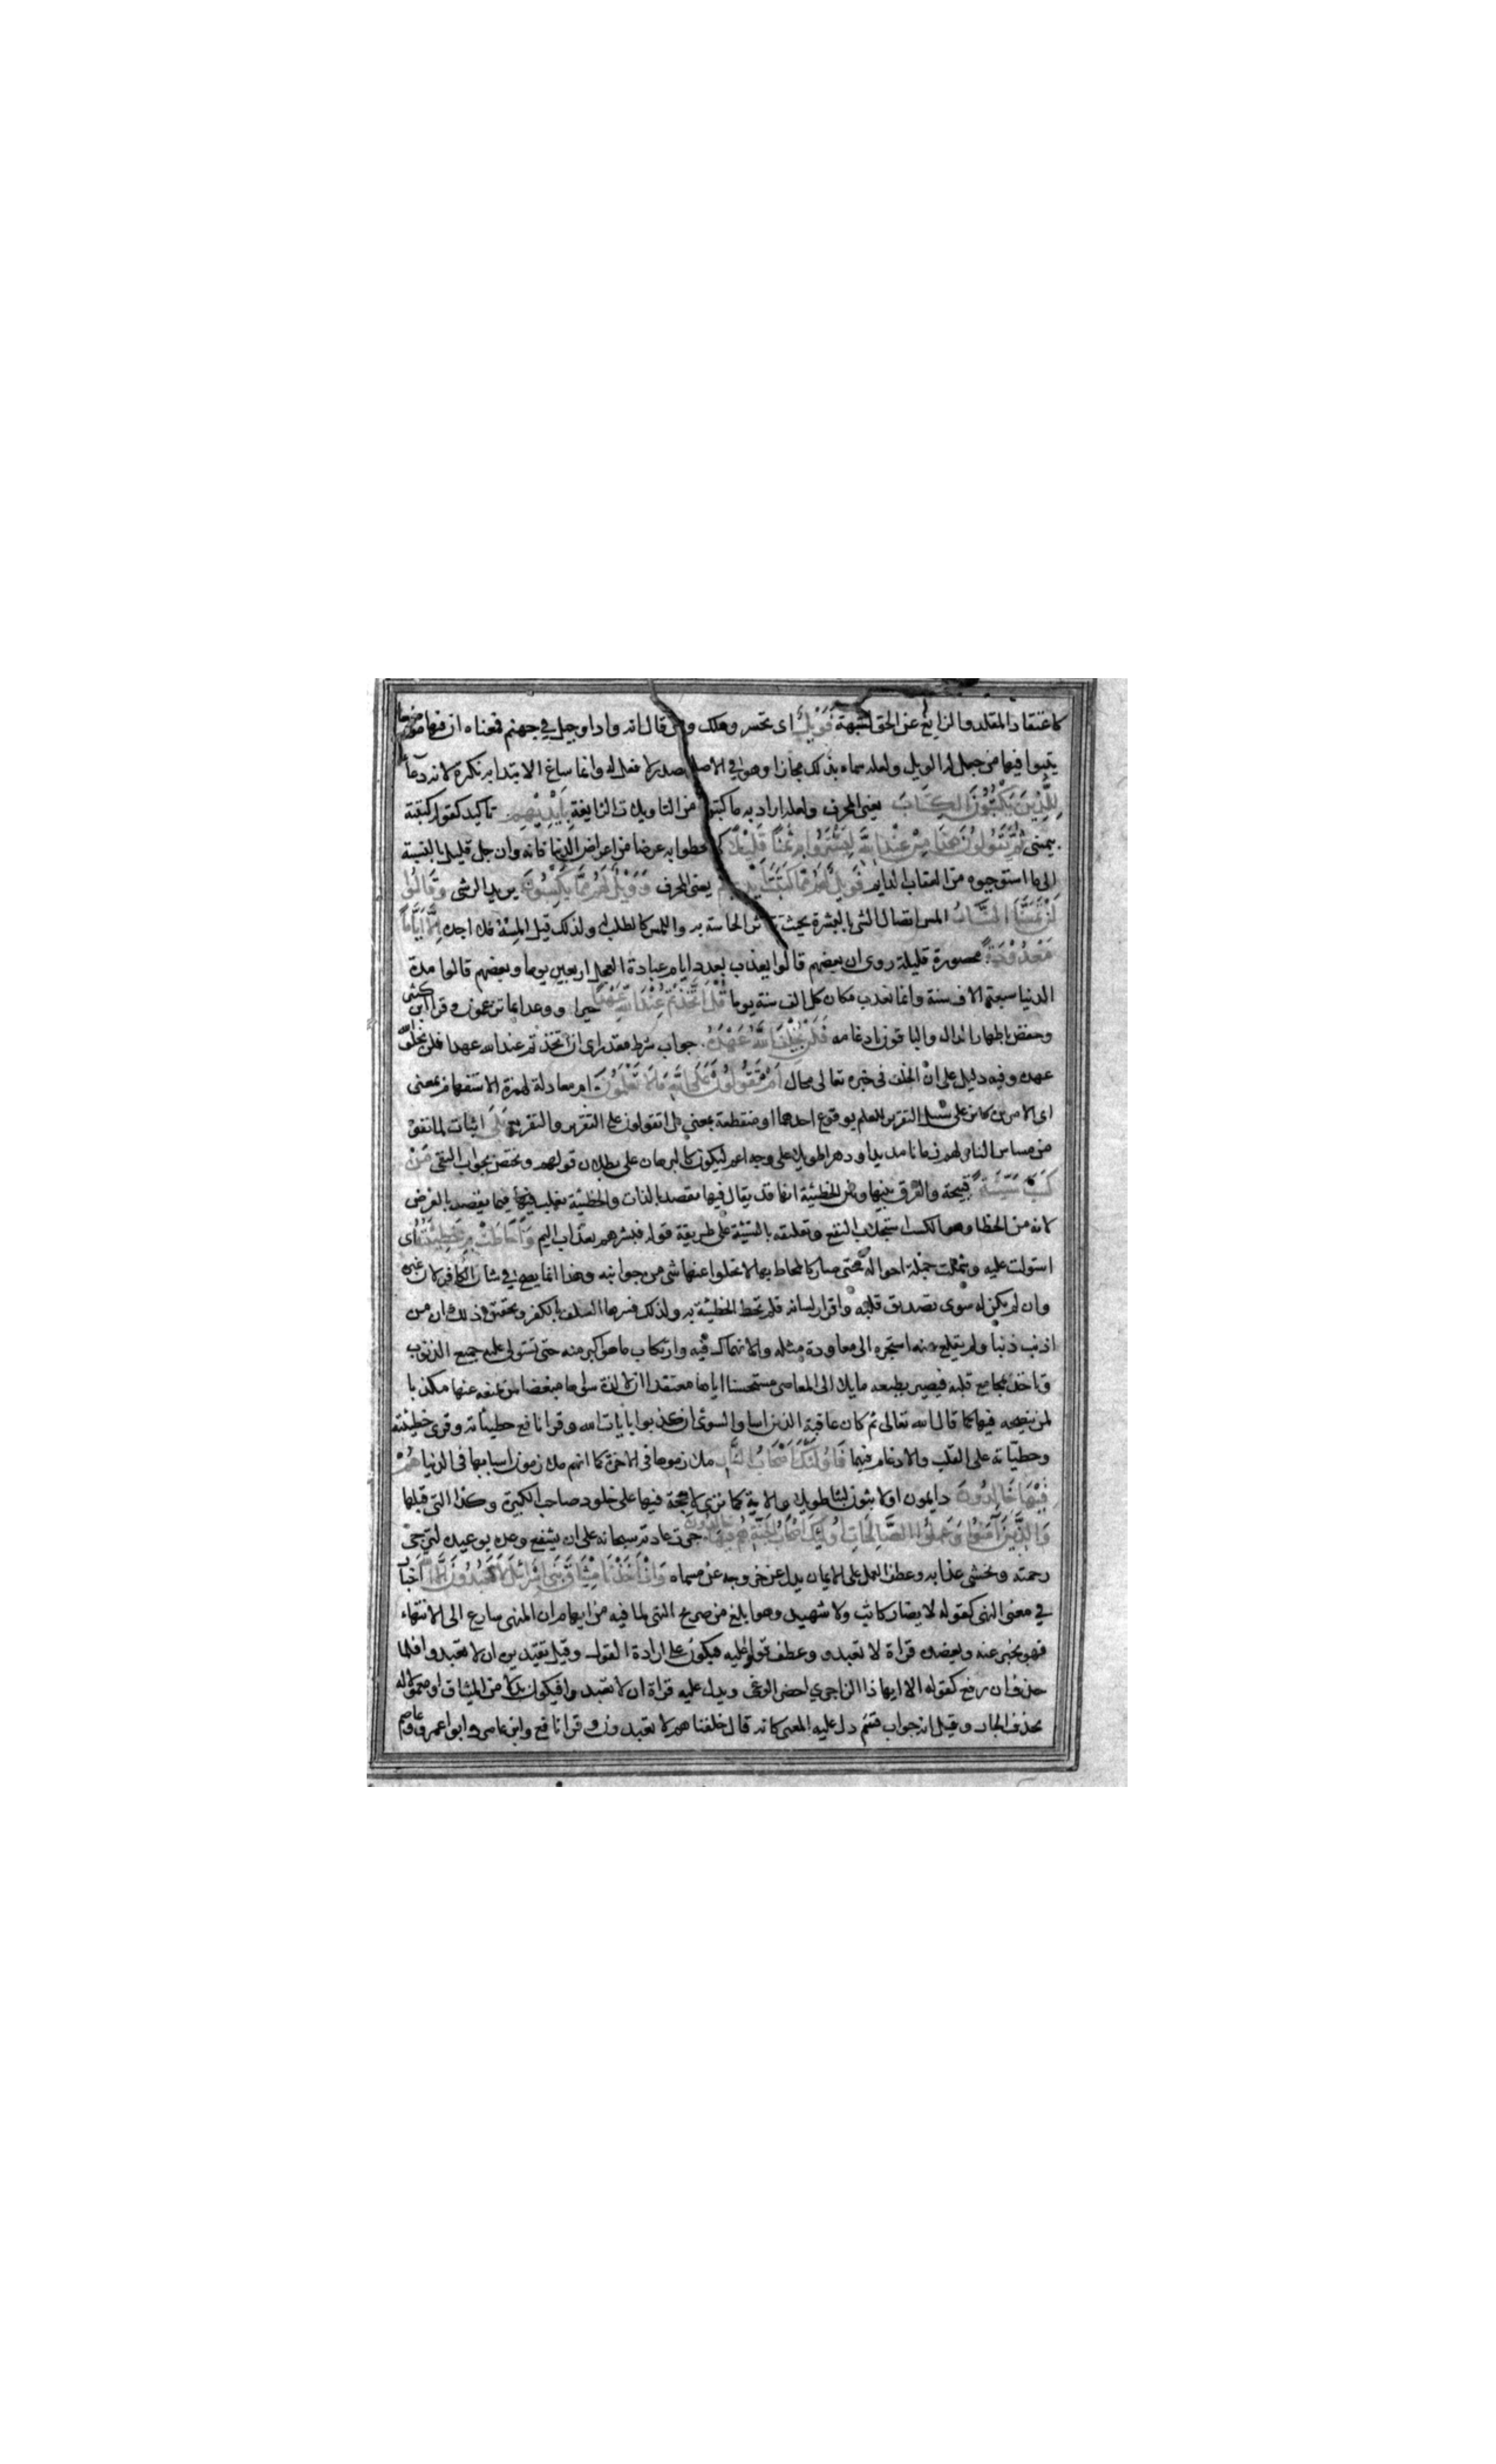 كاعتقاد المقلد والزايغ عن الحق لشبهة فَوَيْلٌ اى تحسر وهلك ومن قال انه واد او جبل في جهنم فمعناه ان فيها موضعا
يتبوا فيها من جعل له الويل ولعله سماه بذلك مجازا وهو في الاصل مصدر لا فعل له وانما ساغ الابتدا به نكرة لانه دعا
لِلَّذِينَ يَكْتُبُونَ الْكِتَابَ يعني المحرف ولعله اراد به ما كتبوه من التاويلات الزايغة بِأَيْدِيهِمْ تاكيد كقولك كتبته
بيمينى ثُمَّ يَقُولُونَ هَذَا مِنْ عِنْدِ اللَّهِ لِيَشْتَرُوا بِهِ ثَمَنًا قَلِيلًا كى يحصلوا به عرضا من اعراض الدنيا فانه وان جل قليل بالنسبة
الى ما استوجبوه من العقاب الدايم فَوَيْلٌ لَهُمْ مِمَّا كَتَبَتْ أَيْدِيهِمْ يعنى المحرف وَوَيْلٌ لَهُمْ مِمَّا يَكْسِبُونَ يريد الرشى وَقَالُوا
لَنْ تَمَسَّنَا النَّارُ المس اتصال الشى بالبشرة بحيث تتاثر الحاسة به واللمس كالطلب له ولذلك قيل المسه فلا اجده إِلَّا أَيَّامًا
مَعْدُودَةً محصورة قليلة روى ان بعضهم قالوا نعذب بعدد ايام عبادة العجل اربعين يوما وبعضهم قالوا مدة
الدنيا سبعة الاف سنة وانما نعذب مكان كل الف سنة يوما قُلْ أَتَّخَذْتُمْ عِنْدَ اللَّهِ عَهْدًا خبرا ووعدا بما تزعمون وقرا ابن كثير
وحفص باظهار الذال والباقون بادغامه فَلَنْ يُخْلِفَ اللَّهُ عَهْدَهُ جواب شرط مقدر اى ان اتخذتم عند الله عهدا فلن يخلف
عهده وفيه دليل على ان الخلف فى خبره تعالى محال أَمْ تَقُولُونَ عَلَى اللَّهِ مَا لَا تَعْلَمُونَ ام معادلة لهمزة الاستفهام بمعنى
اى الامرين كاين على سبيل التقرير للعلم بوقوع احدهما او منقطعة بمعنى بل اتقولون على التقرير والتقريع بَلَى اثبات لما نفوه
من مساس النار لهم زمانا مديدا ودهرا طويلا على وجه اعم ليكون كالبرهان على بطلان قولهم ويختص بجواب النفى مَنْ
كَسَبَ سَيِّئَةً قبيحة والفرق بينها وبين الخطيئة انها قد يقال فيما يقصد بالذات والخطيئة تغلب فيما يقصد بالعرض
لانه من الخطا وهو الكسب استجلاب النفع وتعليقه بالسيئة على طريقة قوله فبشرهم بعذاب اليم وَأَحَاطَتْ بِهِ خَطِيئَتُهُ اى
استولت عليه وشملت جملة احواله حتى صار كالمحاط بها لا يخلوا عنها شى من جوانبه وهذا انما يصح فى شان الكافر لان غيره
وان لم يكن له سوى تصديق قلبه واقرار لسانه فلم تحط الخطيئة به ولذلك فسرها السلف بالكفر وتحقيق ذلك ان من
اذنب ذنبا ولم يقلع عنه استجره الى معاودة مثله والانهماك فيه وارتكاب ما هو اكبر منه حتى تستولى عليه جميع الذنوب
وتاخذ بمجامع قلبه فيصير بطبعه مايلا الى المعاصى مستحسنا اياها معتقدا ان لا لذة سواها مبغضا من يمنعه عنها مكذبا
لمن ينصحه فيها كما قال الله تعالى ثم كان عاقبة الذين اساوا السوئى ان كذبوا بايات الله وقرا نافع خطيئاته وقرى خطيته
وخطياته على القلب والادغام فيها فَأُولَئِكَ أَصْحَابُ النَّارِ ملازموها فى الاخرة كما انهم ملازمون اسبابها فى الدنيا هُمْ
فِيهَا خَالِدُونَ دايمون او لابثون لبثا طويلا والاية كما ترى لا حجة فيها على خلود صاحب الكبيرة وكذا التى قبلها
وَالَّذِينَ آمَنُوا وَعَمِلُوا الصَّالِحَاتِ أُولَئِكَ أَصْحَابُ الْجَنَّةِ هُمْ فِيهَا خَالِدُونَ جرت عادته سبحانه على ان يشفع وعده بوعيده لترجى
رحمته ويخشى عذابه وعطف العمل على الايمان يدل على خروجه عن مسماه وَإِذْ أَخَذْنَا مِيثَاقَ بَنِي إِسْرَائِيلَ لَا تَعْبُدُونَ إِلَّا اللَّهَ اخبار
في معنى النهى كقوله لا يضار كاتب ولا شهيد وهو ابلغ من صريح النهى لما فيه من ايهام ان المنهى سارع الى الانتهاء
فهو يخبر عنه ويعضده قراة لا تعبدوا وعطف قولوا عليه فيكون على ارادة القول وقيل تقديره ان لا تعبدوا فلما
حذف ان رفع كقوله الا ايهاذا الزاجرى احضر الوغى ويدل عليه قراة ان لا تعبدوا فيكون بدلا من الميثاق او معمولا له
بحذف الجار وقيل انه جواب قسم دل عليه المعنى كانه قال حلفناهم لا تعبدون وقرا نافع وابن عامر وابو عمرو وعاصم